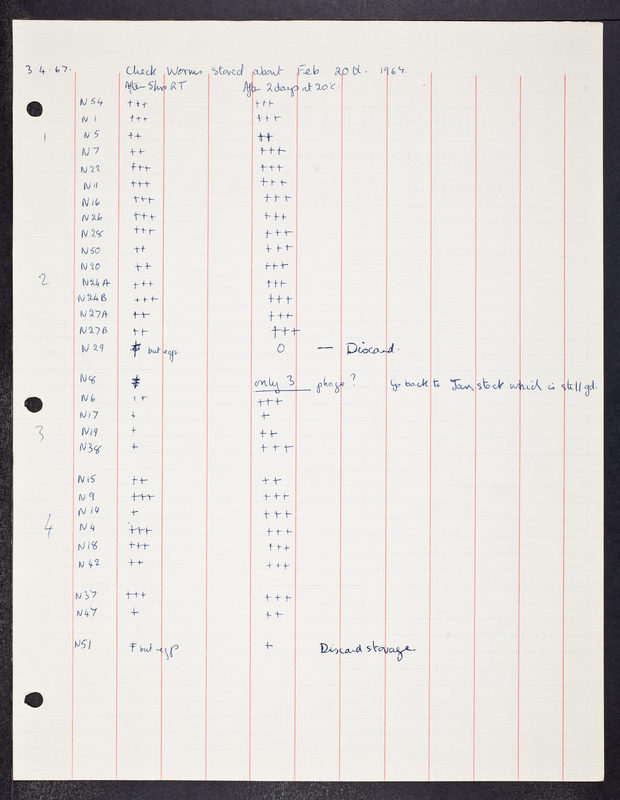 3.4.67. Check Worms stored about Feb 20th. 1967.
After 5hrs RT After 2 days at 20°c.
N54 +++ +++
N1 +++ +++
1 N5 ++ ++
N7 ++ +++
N22 +++ +++
N11 +++ +++
N16 +++ +++
N26 +++ +++
N28 +++ +++
N50 ++ +++
N20 ++ +++
2 N24A +++ +++
N24B +++ +++
N27A ++ +++
N27B ++ +++
N29 but eggs 0 — Discard.
N8 only 3 phage? Go back to Jan. stock which is still gd.
N6 ++ +++
N17 + +
3 N19 + ++
N38 + +++
N15 ++ ++
N9 +++ +++
N14 + +++
4 N4 +++ +++
N18 +++ +++
N42 ++ +++
N37 +++ +++
N47 + ++
N51 but eggs + Discard storage